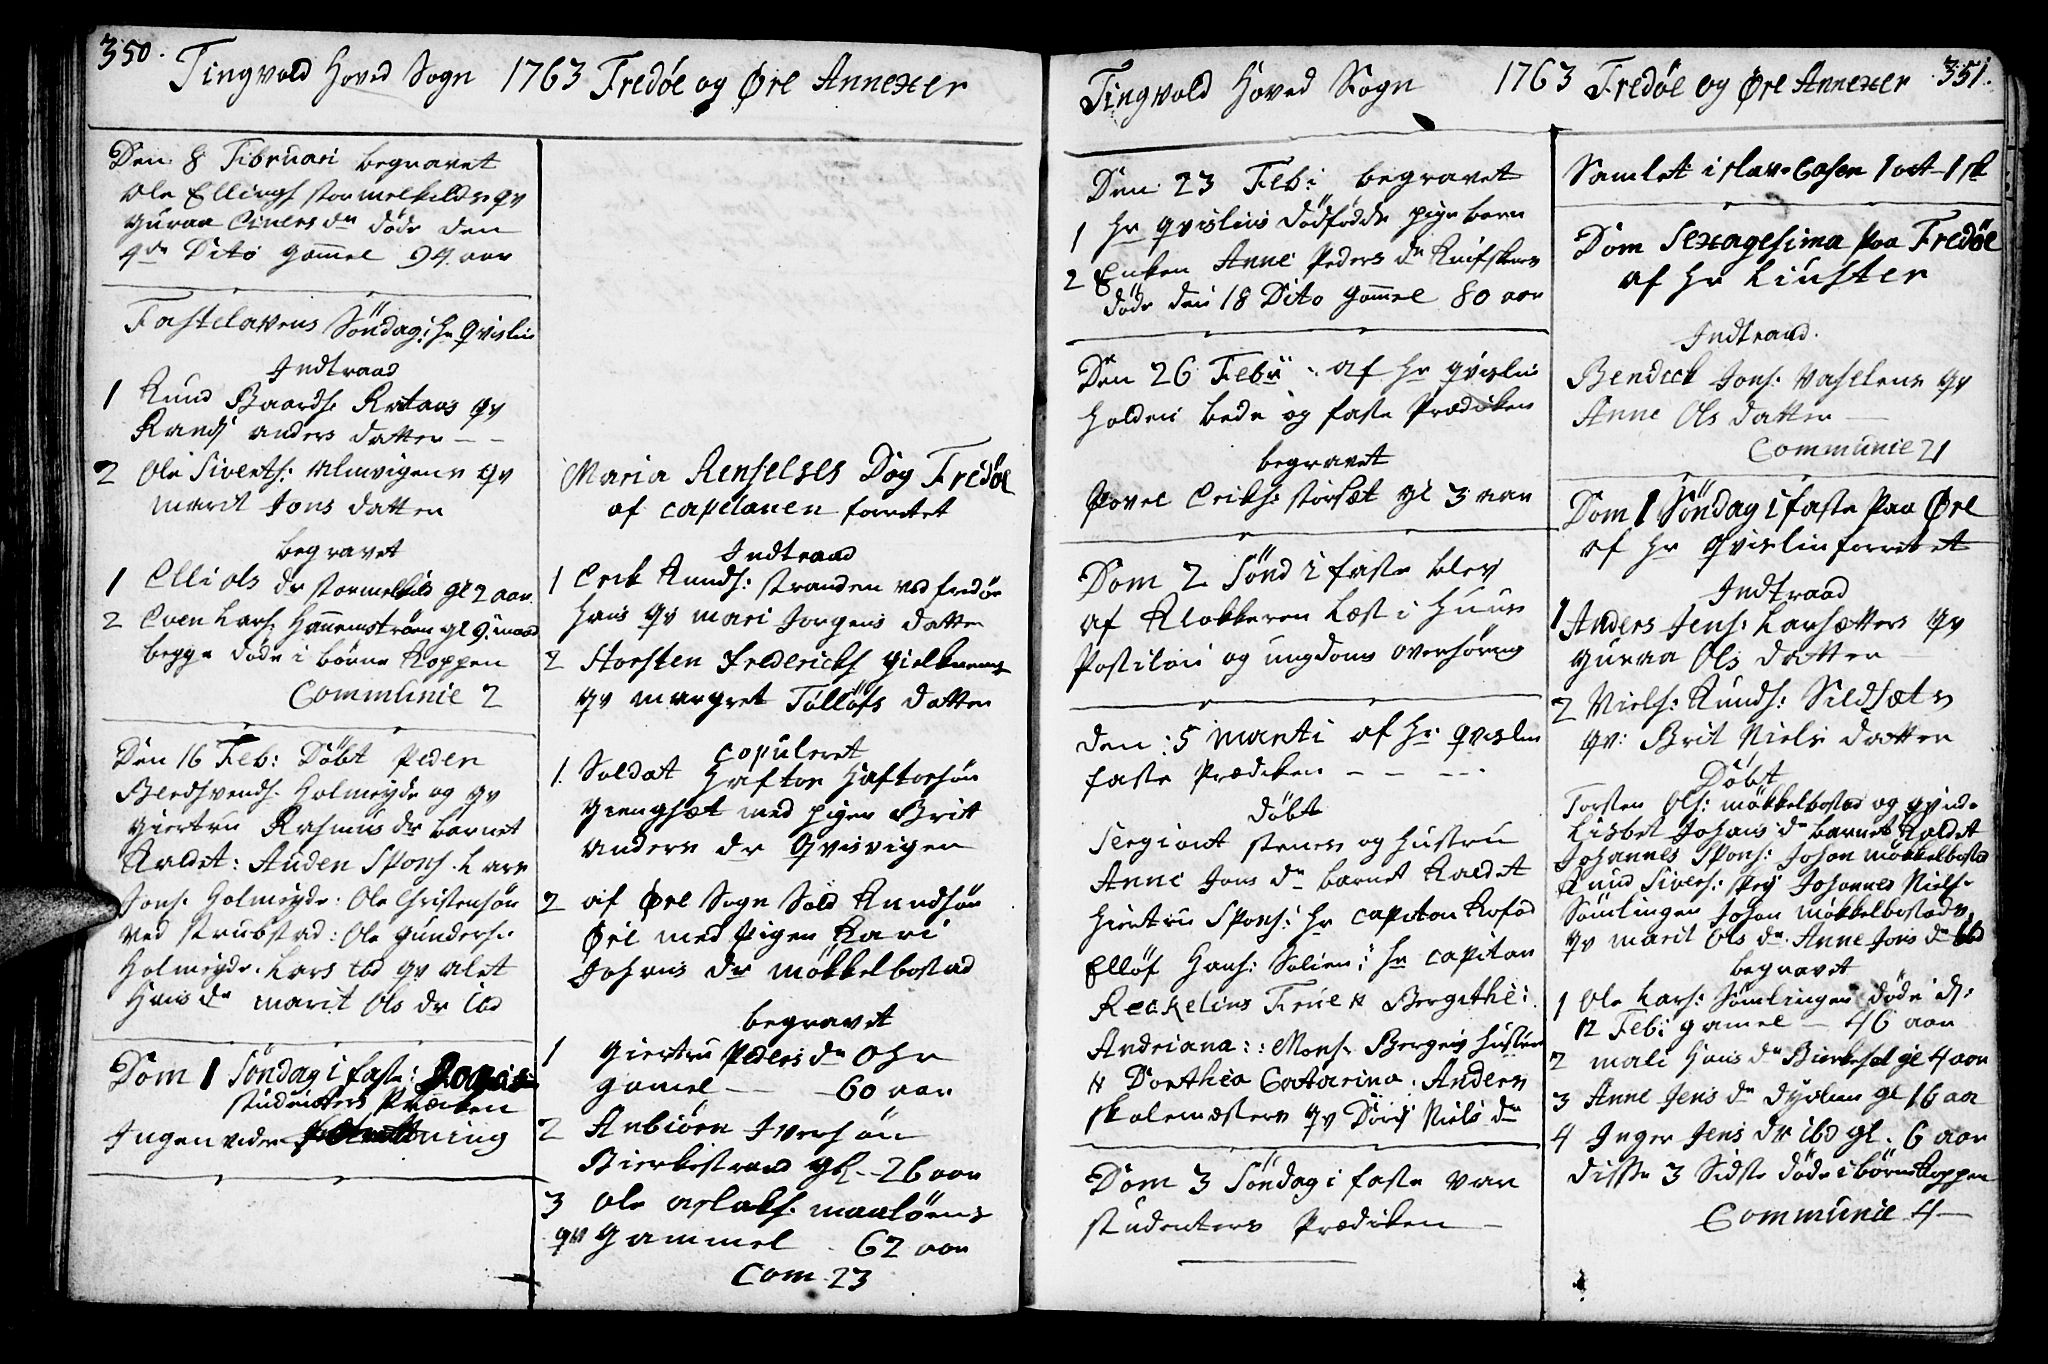 350. Tingvold Hoved Sogn 1763 Fredöe og Øre Annexer
Den 8 Februari begravet
Ole Ellings stormelkilds qv
guraa Einers dr döde den
4de Dito gamel 94 aar
Fastelavens Söndag: hr Qvislin
Indtraad
1 Knud Baards: Rotaas qv
Randi anders datter - -
2 Ole Siverts: Ulmvigens qv
marit Jons datter
begravet
1 Elli ols dr stormelkild gl 2 aar
2 Even Lars: Hanemströen gl 9 maad
begge döde i börne Koppen
Communie 2
Den 16 Feb: Döbt Peder
Holmöyde og qv
giertru Rasmus dr barnet
Kaldet: Anden Spons. Lars
Jons. Holmöyde: Ole Christensön
ved strubstad: Ole gunders:
Holmöyde. Lars ibd qv alet
Hans dr marit Ols dr ibd
Dom 1 Söndag i faste:
studenters Præcken
Ingen viders
Maria Renselses Dag Fredöe
af capelanen forrettet
Indtraad
1 Erik Knuds: stranden ved fredöe
hans qv mari Jorgens datter
2 Storsten Fredericks gielknems
qv margret Tollöfs datter
copuleret
1. Soldat Haftor Haftorsön
giengsæt med pigen Britt
anders dr Qvisvigen
2 af Øre Sogn Sold Knudsön
Øre med Pigen Kari
Johans dr mökkelbostad
begravet
1 giertru Peders dr Ohr
gamel - 60 aar
2 Anbiörn Iversön
Bierkestrand gl - 26 aar
3 Ole aslaks. maalöens
qv gammel . 62 aar
Com 23
Tingvold Hoved Sogn 1763 Fredöe og Øre Annexer 351.
Den 23 Feb: begravet
1 hr qvislins dödfödde pigebarn
2 Enken Anne Peders dr
döde den 18 Dito gamel 80 aar
Den 26 Feb: af hr qvislin
holden bede og faste Prædiken
begravet
Povel Eriks: storsæt gl 3 aar
Dom 2 Sönd i faste blev
af Klokkeren Læst i Huus
Postilen og ungdoms overhöring
den: 5 marti af hr: qvislin
faste Prædiken - - - -
döbt
Sergiant stener og hustru
Anne Jons dr barnet Kaldet
hiertru Spons: hr capitan Kofod
Ellöf Hans: Solien: hr capitan
Reckelins Frue Bergithe:
Andriana:: Mons. Bergens hustru
Dorthea Catarina: Anders
skolemæsters qv Dorj Niels dr
Dom 3 Söndag i faste var
studenters Prædiken -
Samlet i slave Casen 1 ort - 1 sk
Dom Sexagesima paa Fredöe
af hr Linster
Indtraad.
Bendick Jons: vaselens qv
Anne Ols datter
Communie 21
Dom 1 Söndag i faste paa Øre
af hr qvislin forrettet
Indtraad
1 Anders Jens: Larsætters qv
guraa Ols datter
2 Niels: Knuds: Sildsæts
qv: Brit Niels datter
Döbt
Torsten Ols: mökkelbostad og qvinde
Lisbet Johans dr barnet Kaldet
Johannes Spons: Johan möckkelbostad
Knud Sivers: Johannes Niels.
Sömlingen Johan möckkelbostads
qv marit Ols dr. Anne Jons dr ibd
begravet
1 Ole Lars: Sömlingen döde d:
12 Feb: gamel - 46 aar
2 mali hans dr Bierkesæt gl 4 aar
3 Anne Jens dr gl 16 aar
4 Inger Jens dr ibd gl. 6 aar
disse 3 Sidste döde i börne Koppen
Communie 4 -